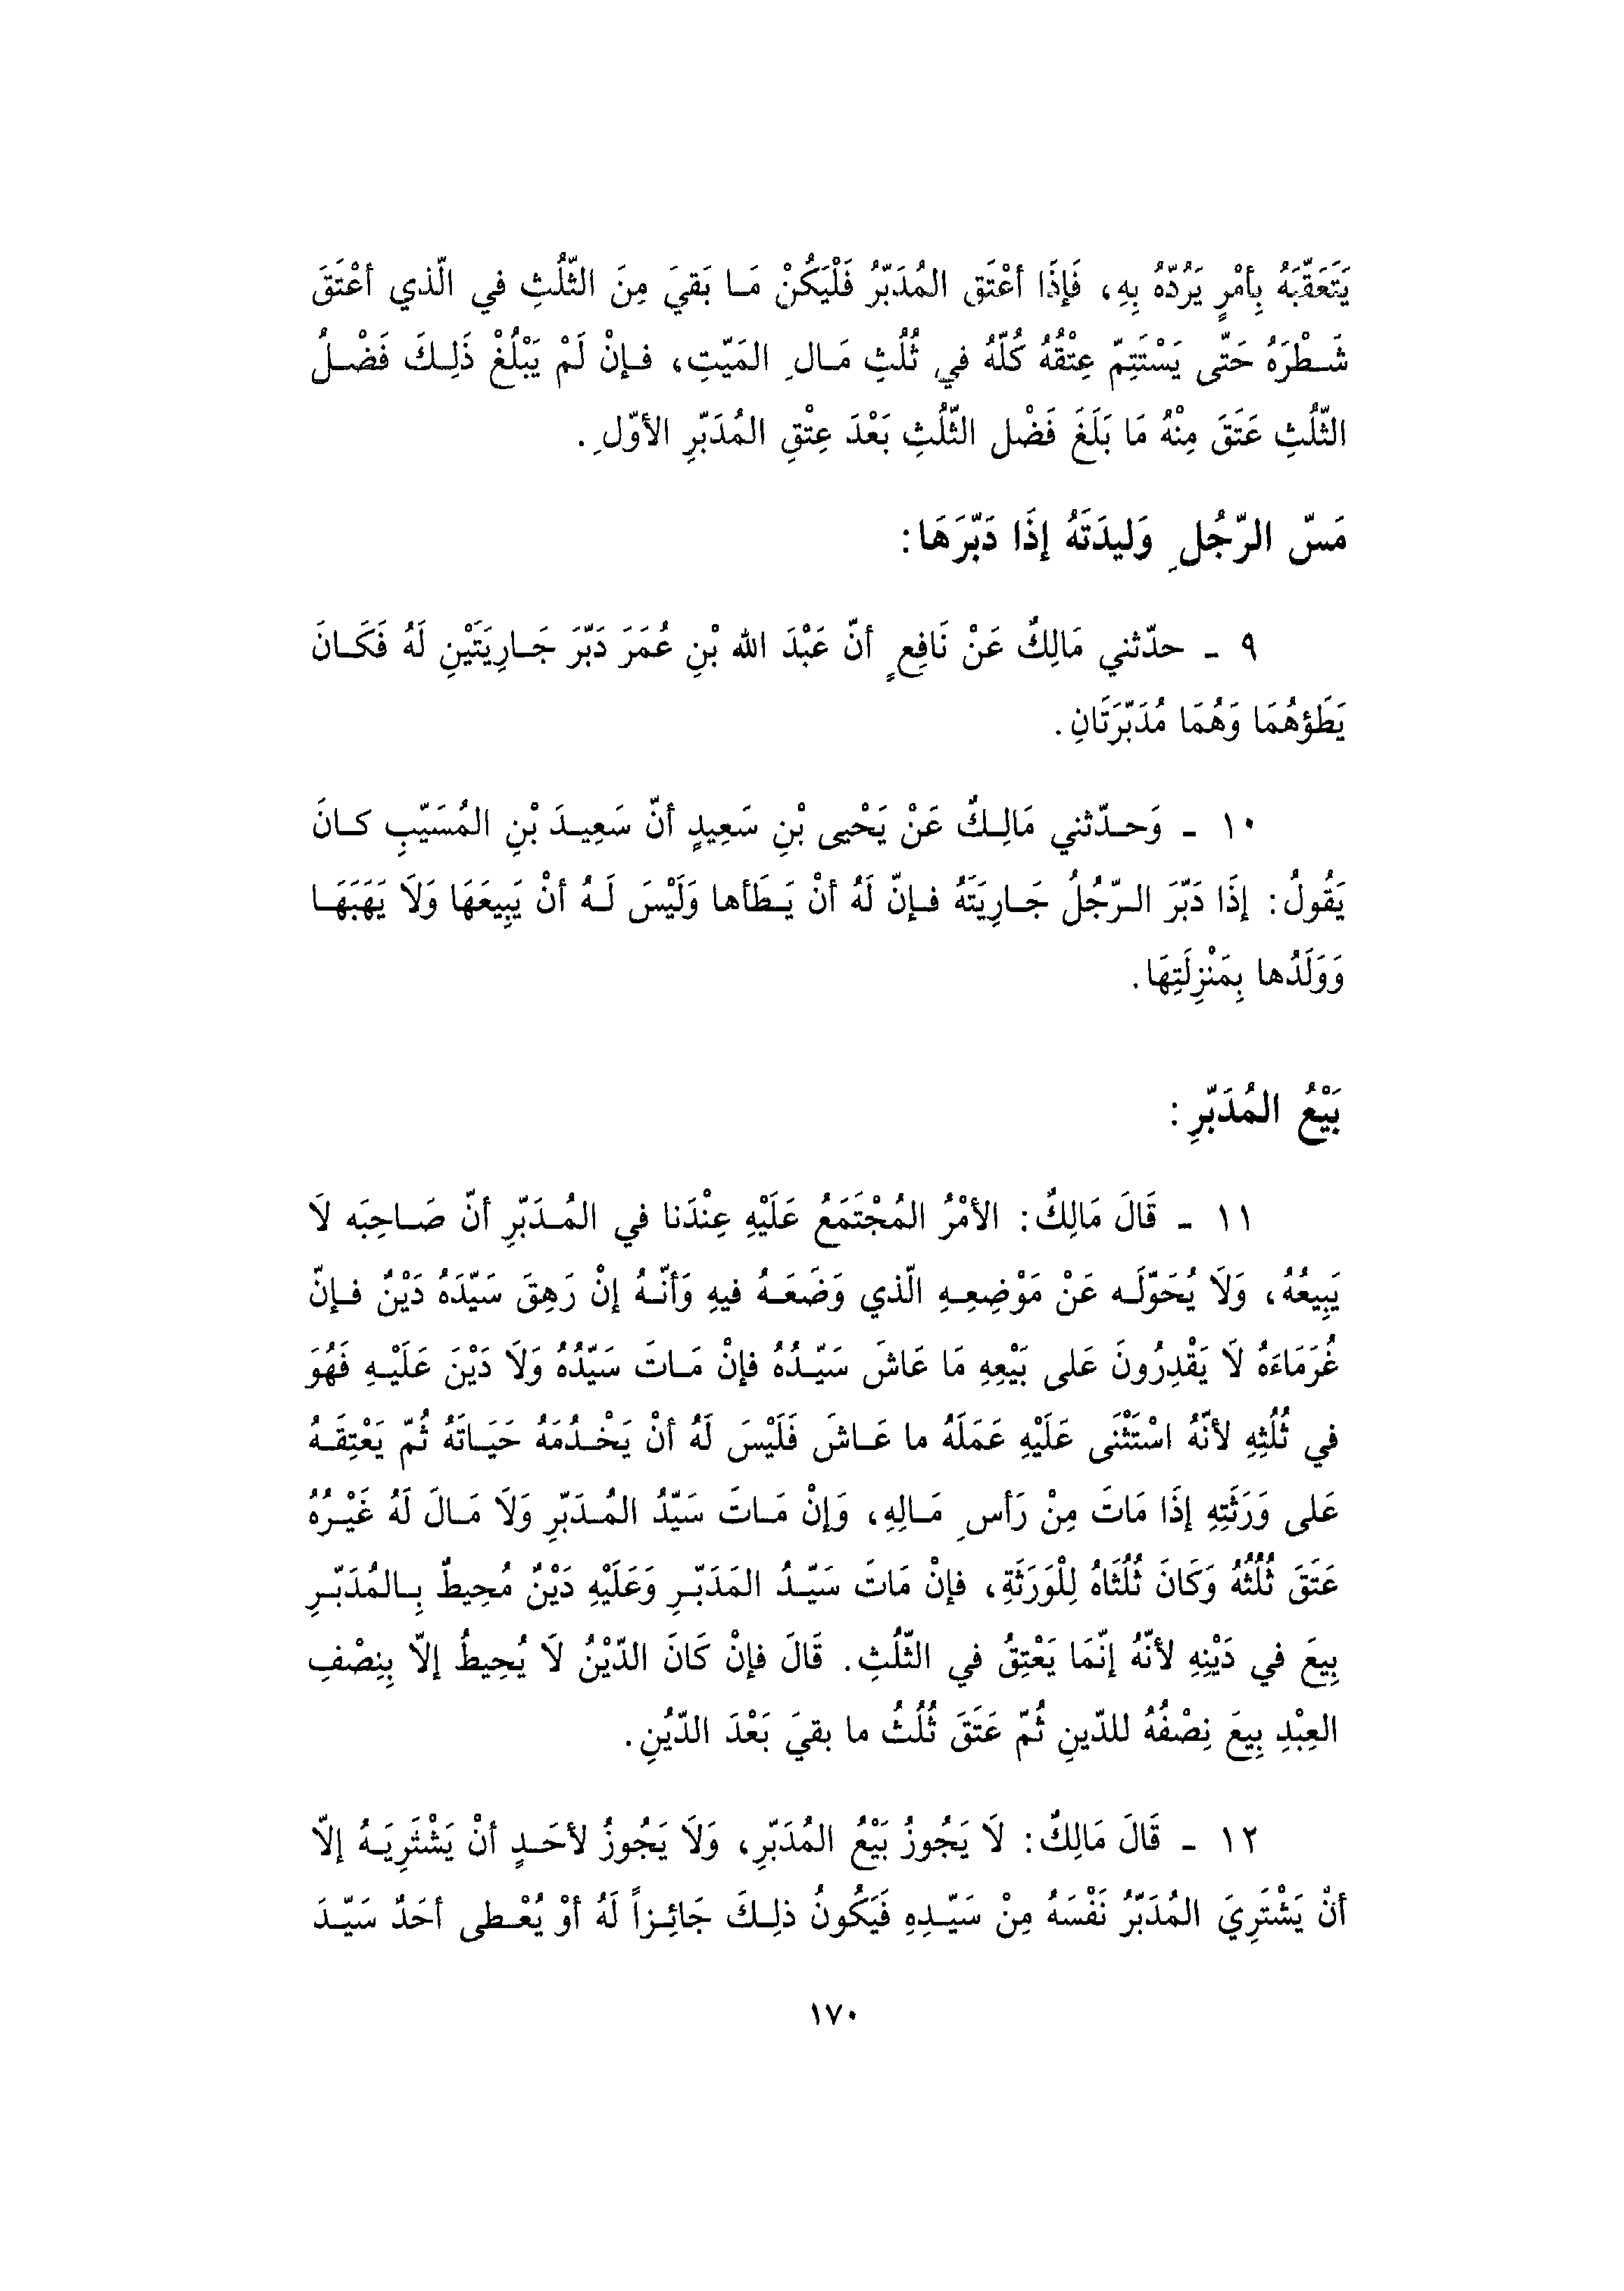 يَتَعَقَّبَهُ بِأمْرٍ يَرُدّهُ بِهِ، فَإذَا أعْتَق المُدَبّرُ فَلْيَكُنْ مَا بَقيَ مِنَ الثّلُثِ في الّذي أعْتَقَ
شَطْرَهُ حَتّى يَسْتَتِمّ عِتْقُهُ كُلّهُ في ثُلُثِ مَالِ المَيّتِ، فإنْ لَمْ يَبْلُغْ ذَلِكَ فَضْلُ
الثّلُثِ عَتَقَ مِنْهُ مَا بَلَغَ فَضْل الثّلُثِ بَعْدَ عِتْقِ المُدَبّرِ الأوّلِ.
مَسّ الرّجُلِ وَليدَتَهُ إذَا دَبّرَهَا:
٩ - حدّثني مَالِكٌ عَنْ نَافِعٍ أنّ عَبْدَ الله بْنِ عُمَرَ دَبّرَ جَارِيَتَيْنِ لَهُ فَكَانَ
يَطَؤهُمَا وَهُمَا مُدَبّرَتَانِ.
١٠ - وَحدّثني مَالِكٌ عَنْ يَحْيى بْنِ سَعِيدٍ أنّ سَعِيدَ بْنِ المُسَيّبِ كانَ
يَقُولُ: إذَا دَبّرَ الرّجُلُ جَارِيَتَهُ فإنّ لَهُ أنْ يَطَأها وَلَيْسَ لَهُ أنْ يَبِيعَهَا وَلاَ يَهَبَهَا
وَوَلَدُها بِمَنْزِلَتِهَا.
بَيْعُ المُدَبّرِ:
١١ - قَالَ مَالِكٌ: الأمْرُ المُجْتَمَعُ عَلَيْهِ عِنْدَنا في المُدَبّرِ أنّ صَاحِبَه لاَ
يَبِيعُهُ، وَلاَ يُحَوّلَه عَنْ مَوْضِعِهِ الّذي وَضَعَهُ فيهِ وَأنّهُ إنْ رَهِقَ سَيّدَهُ دَيْنٌ فإنّ
غُرَمَاءَهُ لاَ يَقْدِرُونَ عَلى بَيْعِهِ مَا عَاشَ سَيّدُهُ فإنْ مَاتَ سَيّدُهُ وَلاَ دَيْنَ عَلَيْهِ فَهُوَ
في ثُلُثِهِ لأنّهُ اسْتَثْنَى عَلَيْهِ عَمَلَهُ ما عَاشَ فَلَيْسَ لَهُ أنْ يَخْدُمَهُ حَيَاتَهُ ثُمّ يَعْتِقَهُ
عَلى وَرَثَتِهِ إذَا مَاتَ مِنْ رَأسِ مَالِهِ، وَإنْ مَاتَ سَيّدُ المُدَبّرِ وَلاَ مَالَ لَهُ غَيْرُهُ
عَتَقَ ثُلُثُهُ وَكَانَ ثُلُثَاهُ لِلْوَرَثَةِ، فإنْ مَاتَ سَيّدُ المَدَبّرِ وَعَلَيْهِ دَيْنٌ مُحِيطٌ بِالمُدَبّرِ
بِيعَ في دَيْنِهِ لأنّهُ إنّمَا يَعْتِقُ في الثّلُثِ. قَالَ فإنْ كَانَ الدّيْنُ لاَ يُحِيطُ إلاّ بِنِصْفِ
العِبْدِ بِيعَ نِصْفُهُ للدّينِ ثُمّ عَتَقَ ثُلُثُ ما بقيَ بَعْدَ الدّيُنِ.
١٢ - قَالَ مَالِكٌ: لاَ يَجُوزُ بَيْعُ المُدَبّرِ، وَلاَ يَجُوزُ لأحَدٍ أنْ يَشْتَرِيَهُ إلاّ
أنْ يَشْتَرِيَ المُدَبّرُ نَفْسَهُ مِنْ سَيّدِهِ فَيَكُونُ ذلِكَ جَائِزاً لَهُ أوْ يُعْطى أحَدٌ سَيّدَ
١٧٠